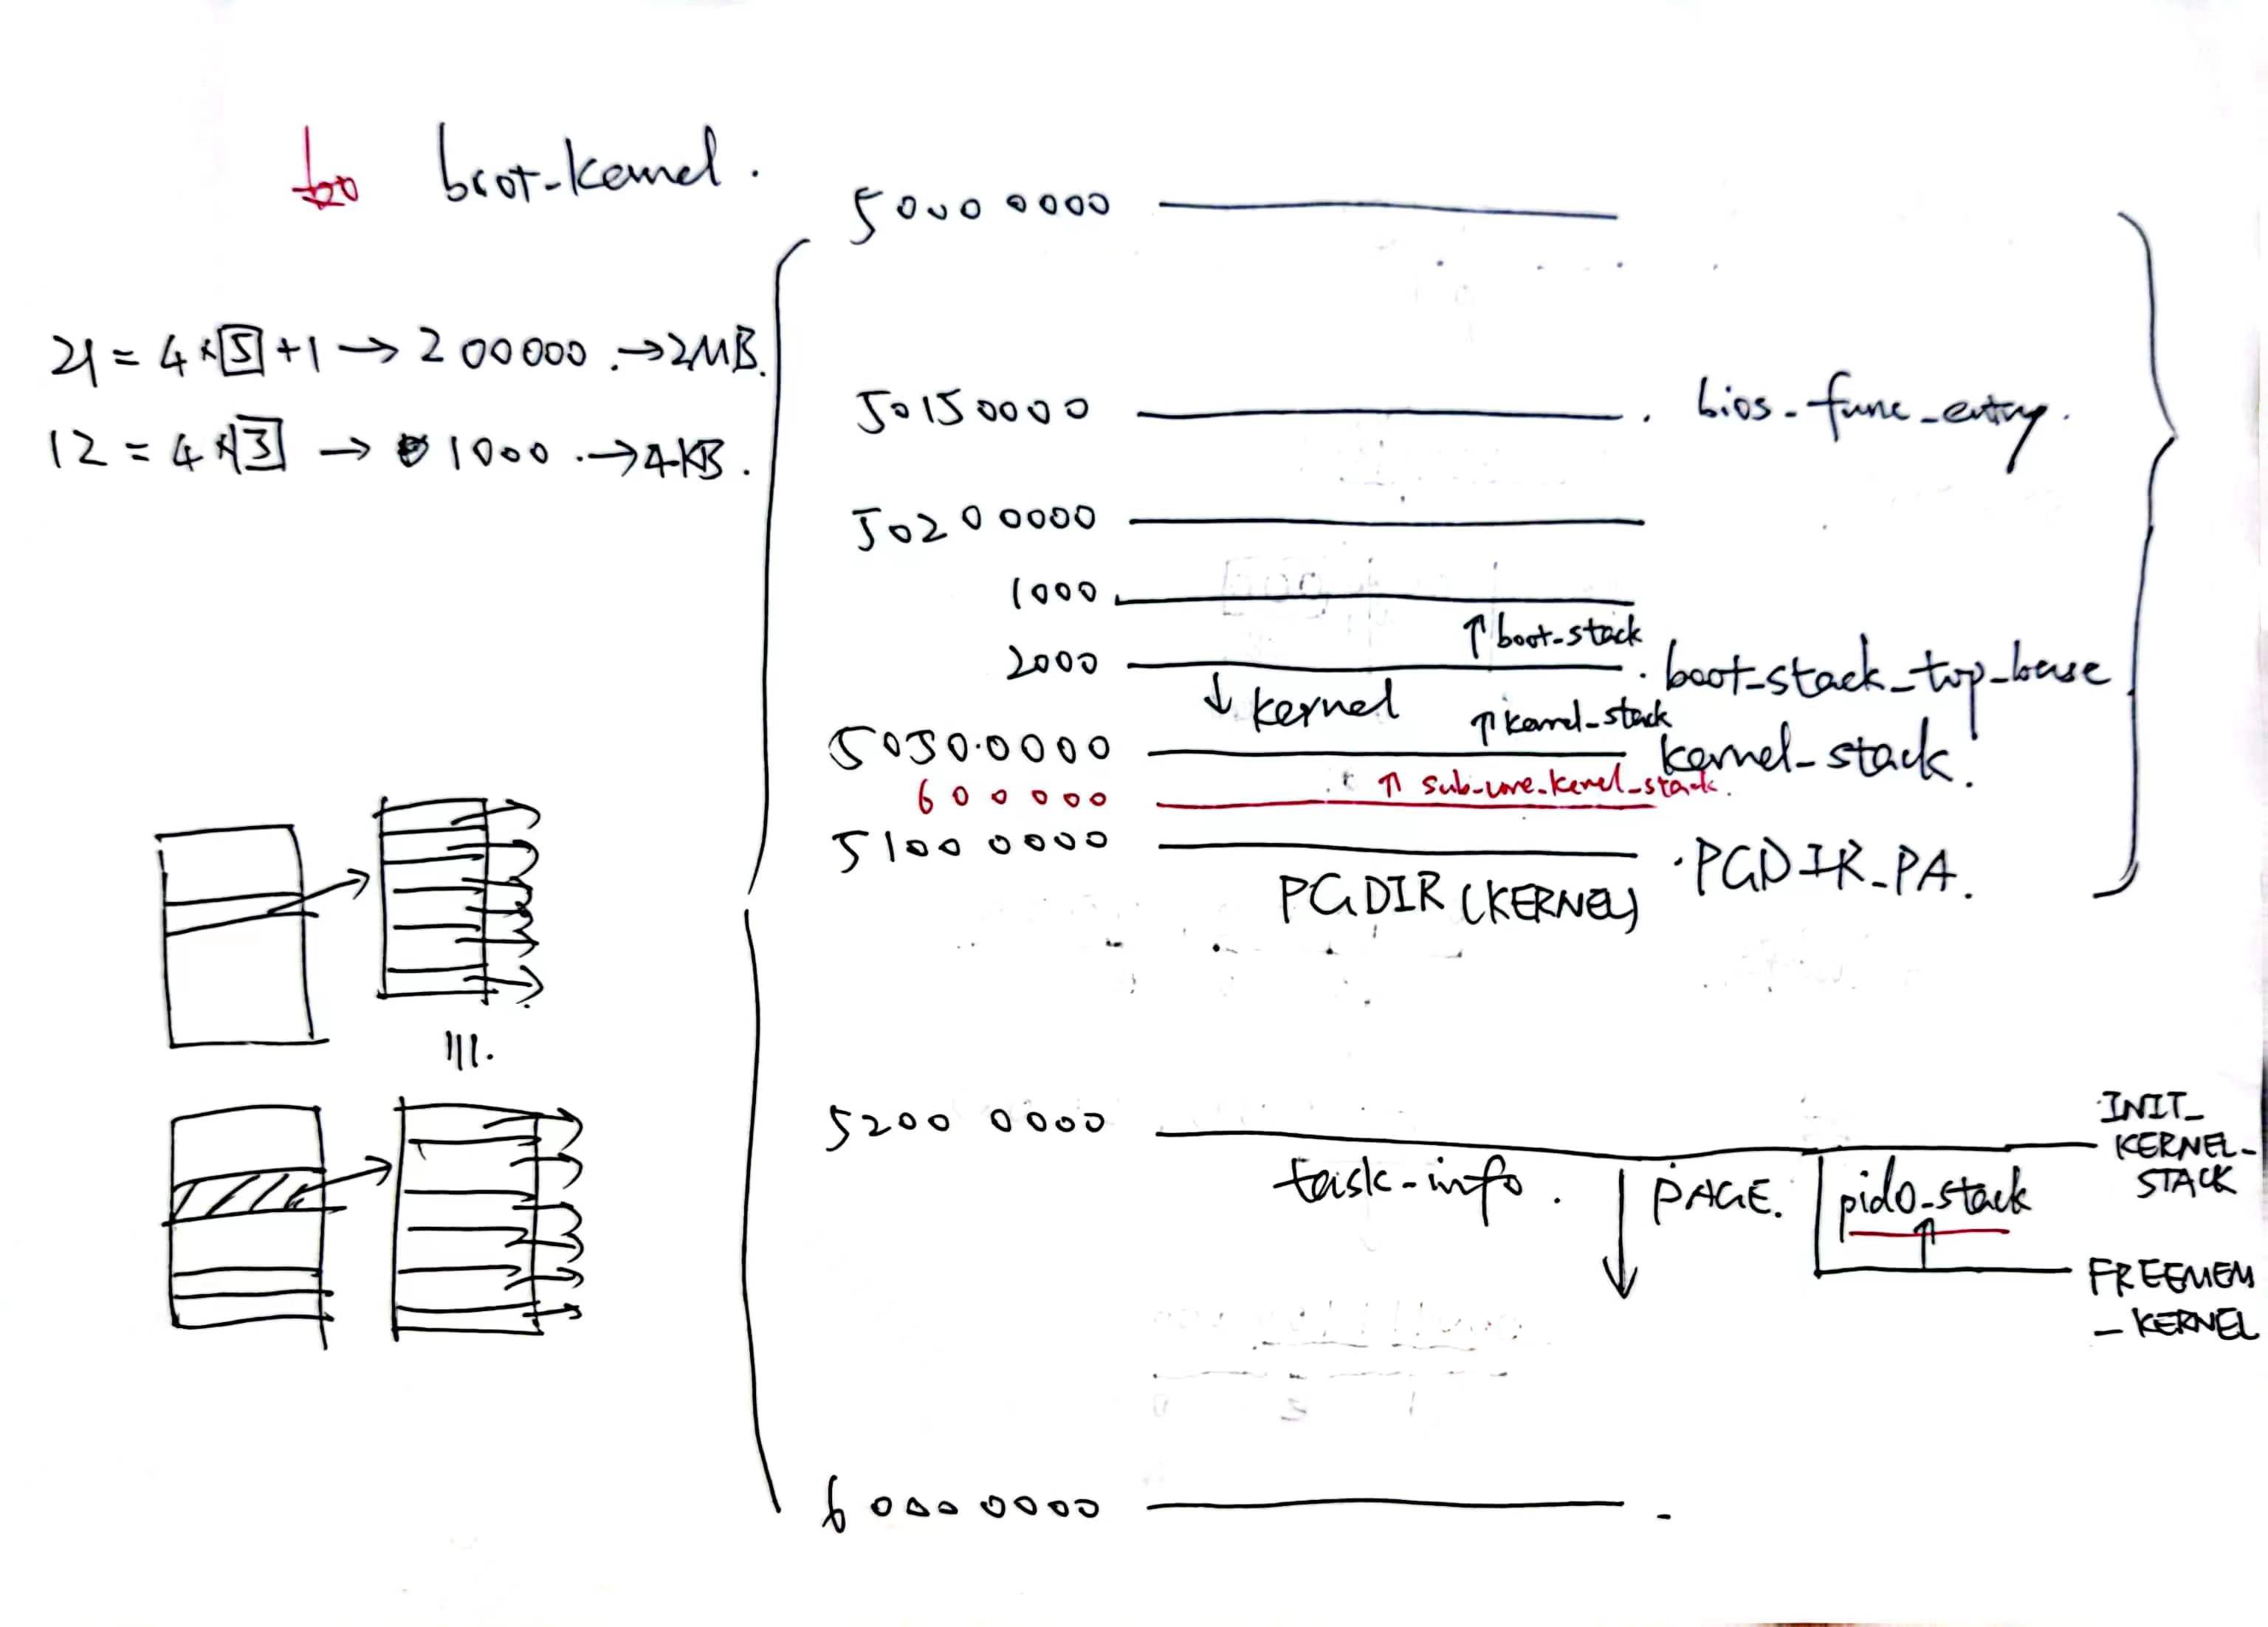 boot-kernel.
21 = 4×5+1 → 200000. → 2MB.
12 = 4×3 → 1000. → 4KB.
5000 0000
50150000 . bios-func-entry.
50200000
1000
↑ boot-stack
2000 . boot-stack-top-base
↓ kernel ↑ kernel-stack
5050 0000 kernel-stack.
600000 ↑ sub-core-kernel-stack.
5100 0000 . PGDIR-PA.
PGDIR (KERNEL)
5200 0000 INIT-
KERNEL-
STACK
task-info. ↓ PAGE. pid0-stack ↑
FREEMEM
-KERNEL
6000 0000